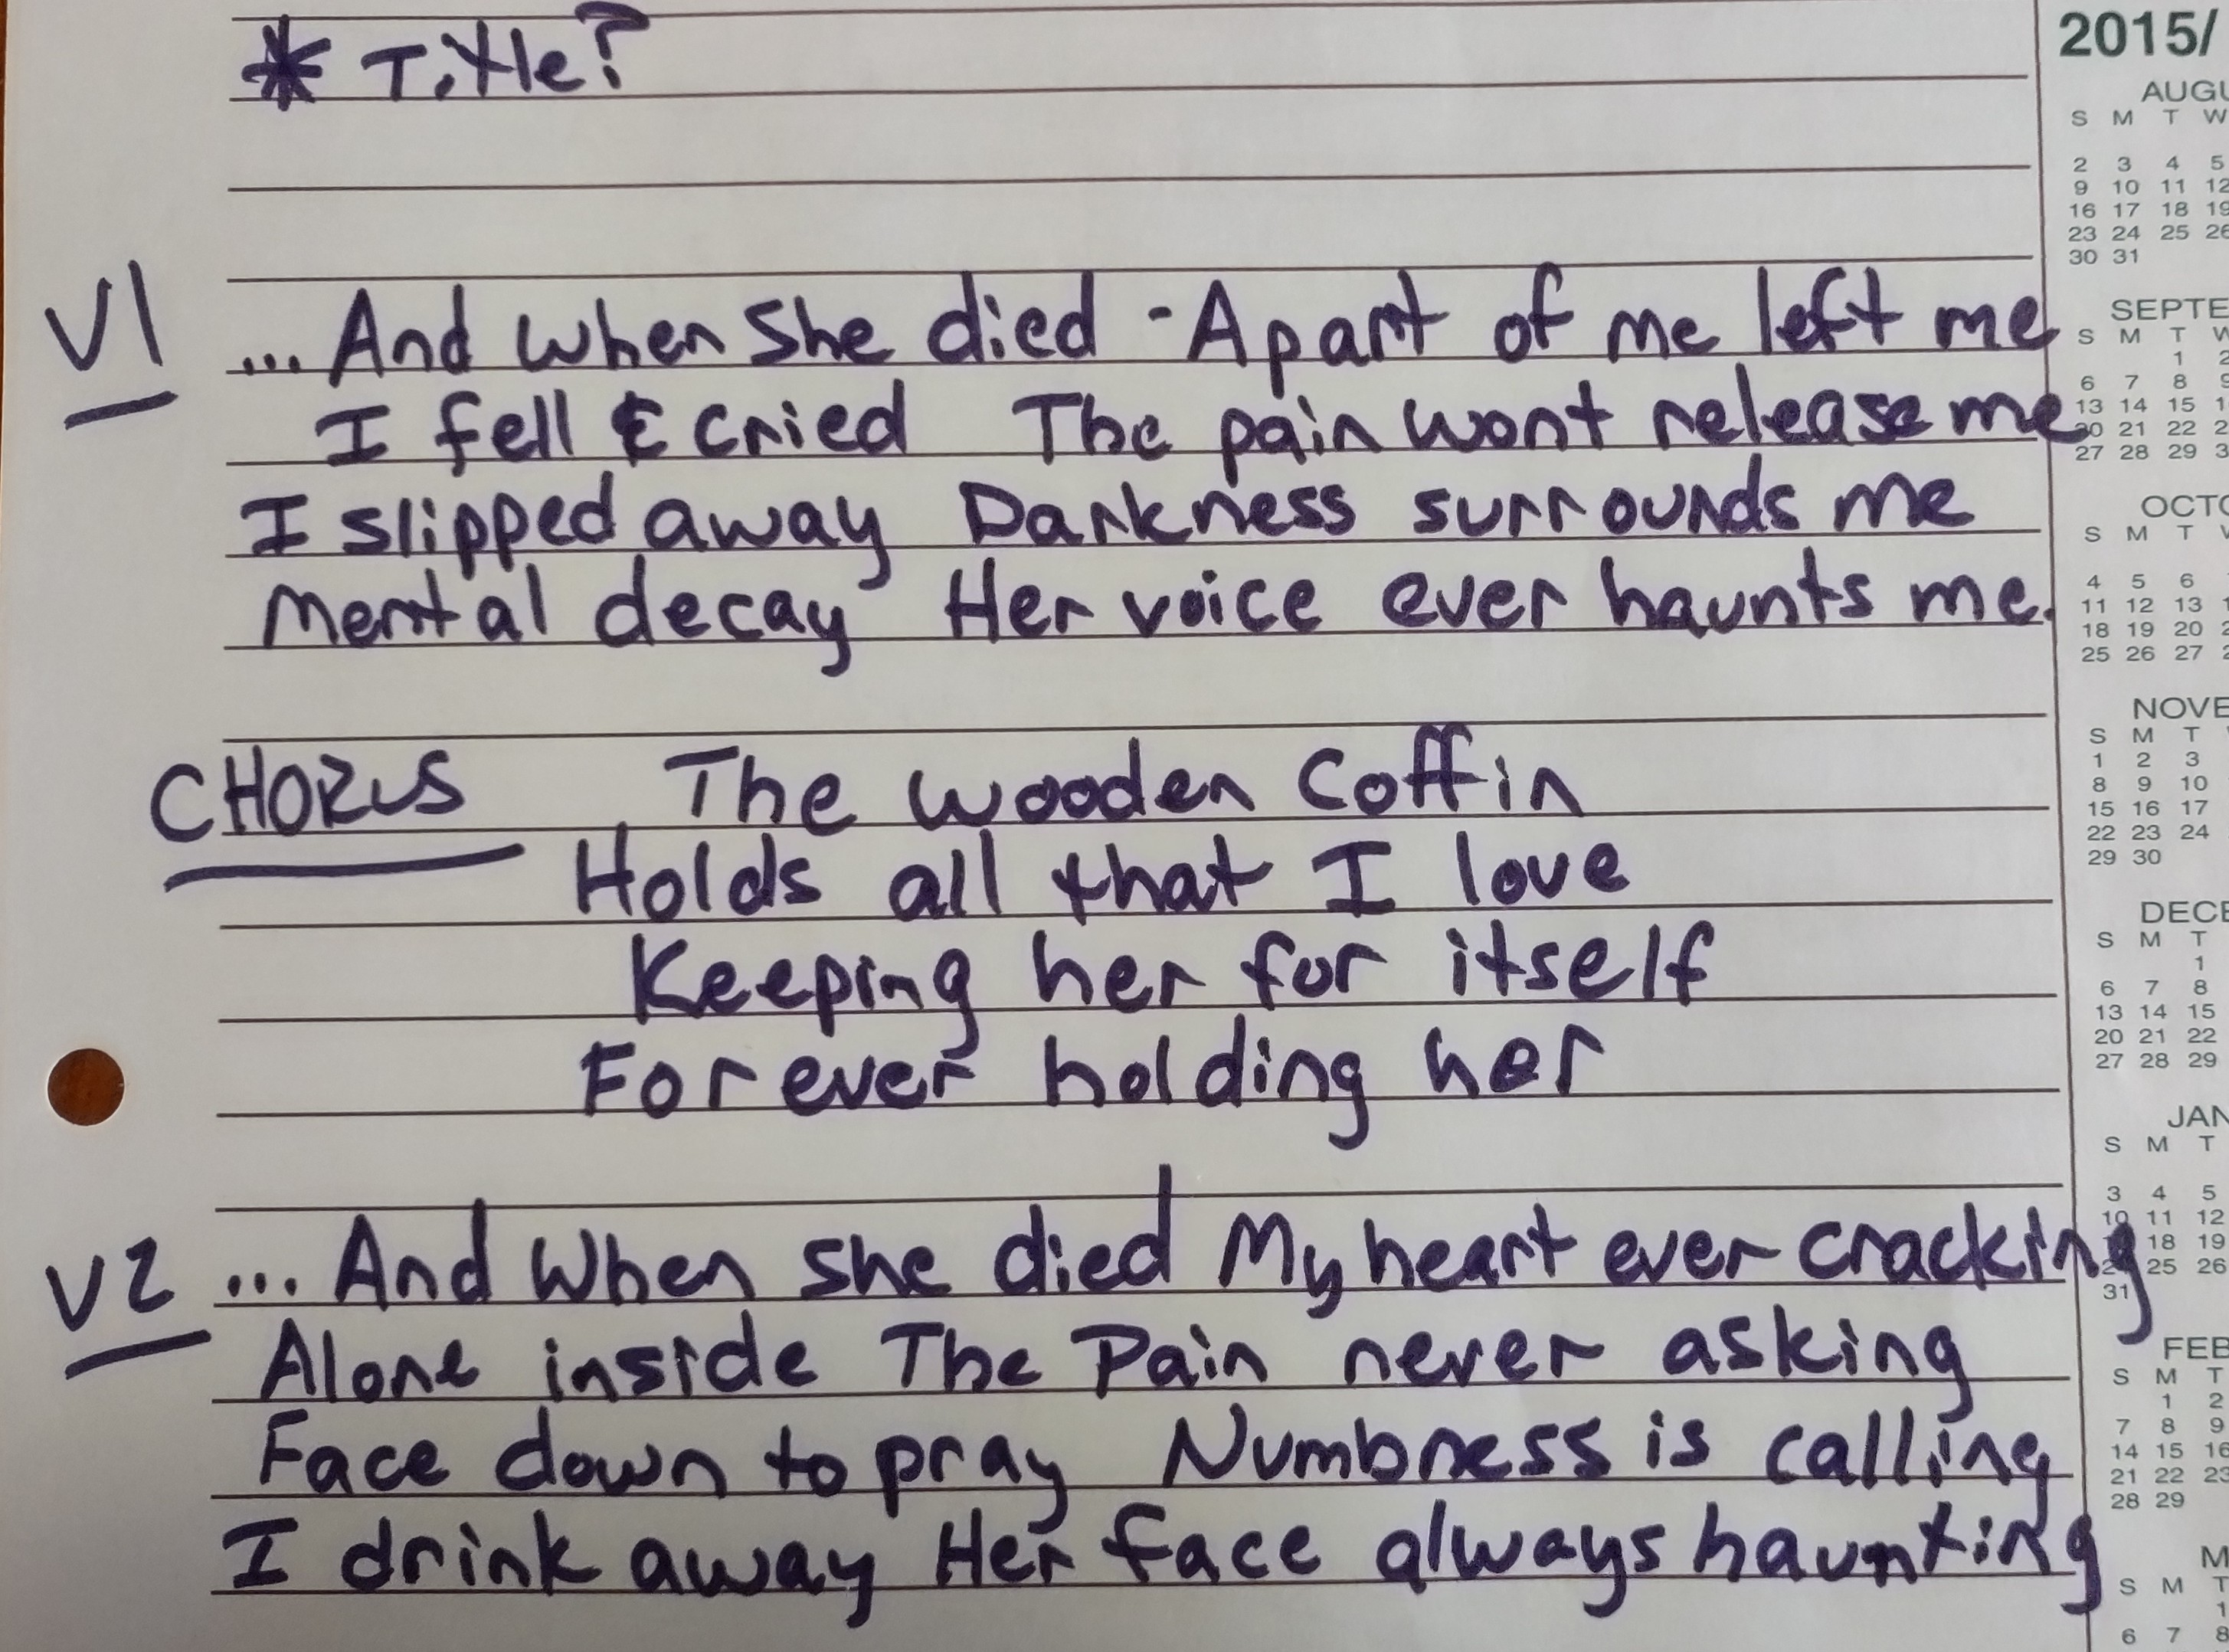 * Title?
V1
... And when she died - Apart of me left me
I fell & cried The pain wont release me
I slipped away Darkness surrounds me
Mental decay Her voice ever haunts me.
CHORUS The wooden coffin
Holds all that I love
Keeping her for itself
Forever holding her
V2 ... And when she died My heart ever cracking
Alone inside The Pain never asking
Face down to pray Numbness is calling
I drink away Her face always haunting
2015/
AUGU
S M T W
2 3 4 5
9 10 11 12
16 17 18 19
23 24 25 26
30 31
SEPTE
S M T W
1 2
6 7 8 9
13 14 15 1
20 21 22 2
27 28 29 3
OCTO
S M T
4 5 6
11 12 13 1
18 19 20 2
25 26 27 2
NOVE
S M T
1 2 3
8 9 10
15 16 17
22 23 24
29 30
DECE
S M T
1
6 7 8
13 14 15
20 21 22
27 28 29
JAN
S M T
3 4 5
10 11 12
18 19
25 26
31
FEB
S M T
1 2
7 8 9
14 15 16
21 22 23
28 29
M
S M T
1
6 7 8